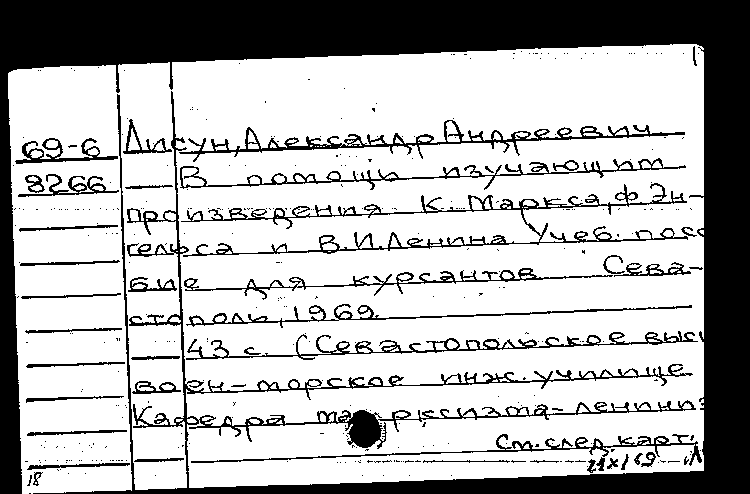 69-6 Лисун, Александр Андреевич
8266 В помощь изучающим
произведения К. Маркса, Ф. Эн-
гельса и В.И. Ленина. Учеб. посо
бие для курсантов Сева-
стополь, 1969.
43 с. (Севастопольское высш
воен-морское инж. училище
Кафедра марксизма-лениниз
См. след. карт.
18